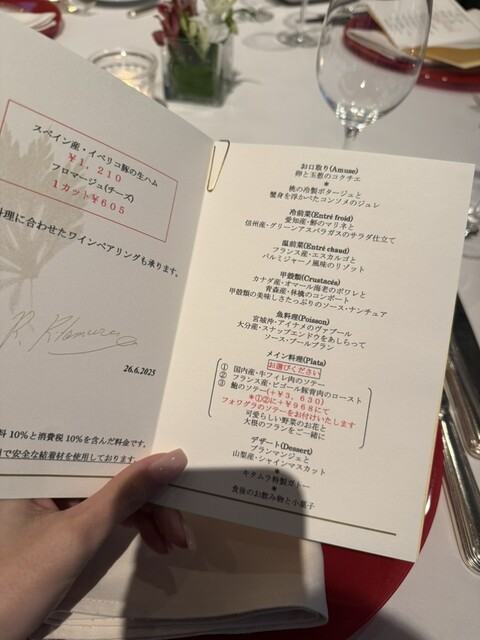 スペイン産・イベリコ豚の生ハム
¥1,210
フロマージュ(チーズ)
1カット¥605
料理に合わせたワインペアリングも承ります。
26.6.2025
料10%と消費税10%を含んだ料金です。
で安全な結着材を使用しております。
お口取り(Amuse)
卵と玉葱のコクチエ
*
桃の冷製ポタージュと
蟹身を浮かべたコンソメのジュレ
冷前菜(Entré froid)
愛知産・鯵のマリネと
信州産・グリーンアスパラガスのサラダ仕立て
温前菜(Entré chaud)
フランス産・エスカルゴと
パルミジャーノ風味のリゾット
甲殻類(Crustacés)
カナダ産・オマール海老のポワレと
青森産・林檎のコンポート
甲殻類の美味しさたっぷりのソース・ナンチュア
魚料理(Poisson)
宮城沖・アイナメのヴァプール
大分産・スナップエンドウをあしらって
ソース・ブールブラン
メイン料理(Plats)
お選びください
① 国内産・牛フィレ肉のソテー
② フランス産・ビゴール豚背肉のロースト
③ 鮑のソテー(+¥3,630)
*①②に+¥968にて
フォワグラのソテーをお付けいたします
可愛らしい野菜のお花と
大根のフランをご一緒に
デザート(Dessert)
ブランマンジェと
山梨産・シャインマスカット
*
キタムラ特製ガトー
*
食後のお飲み物と小菓子